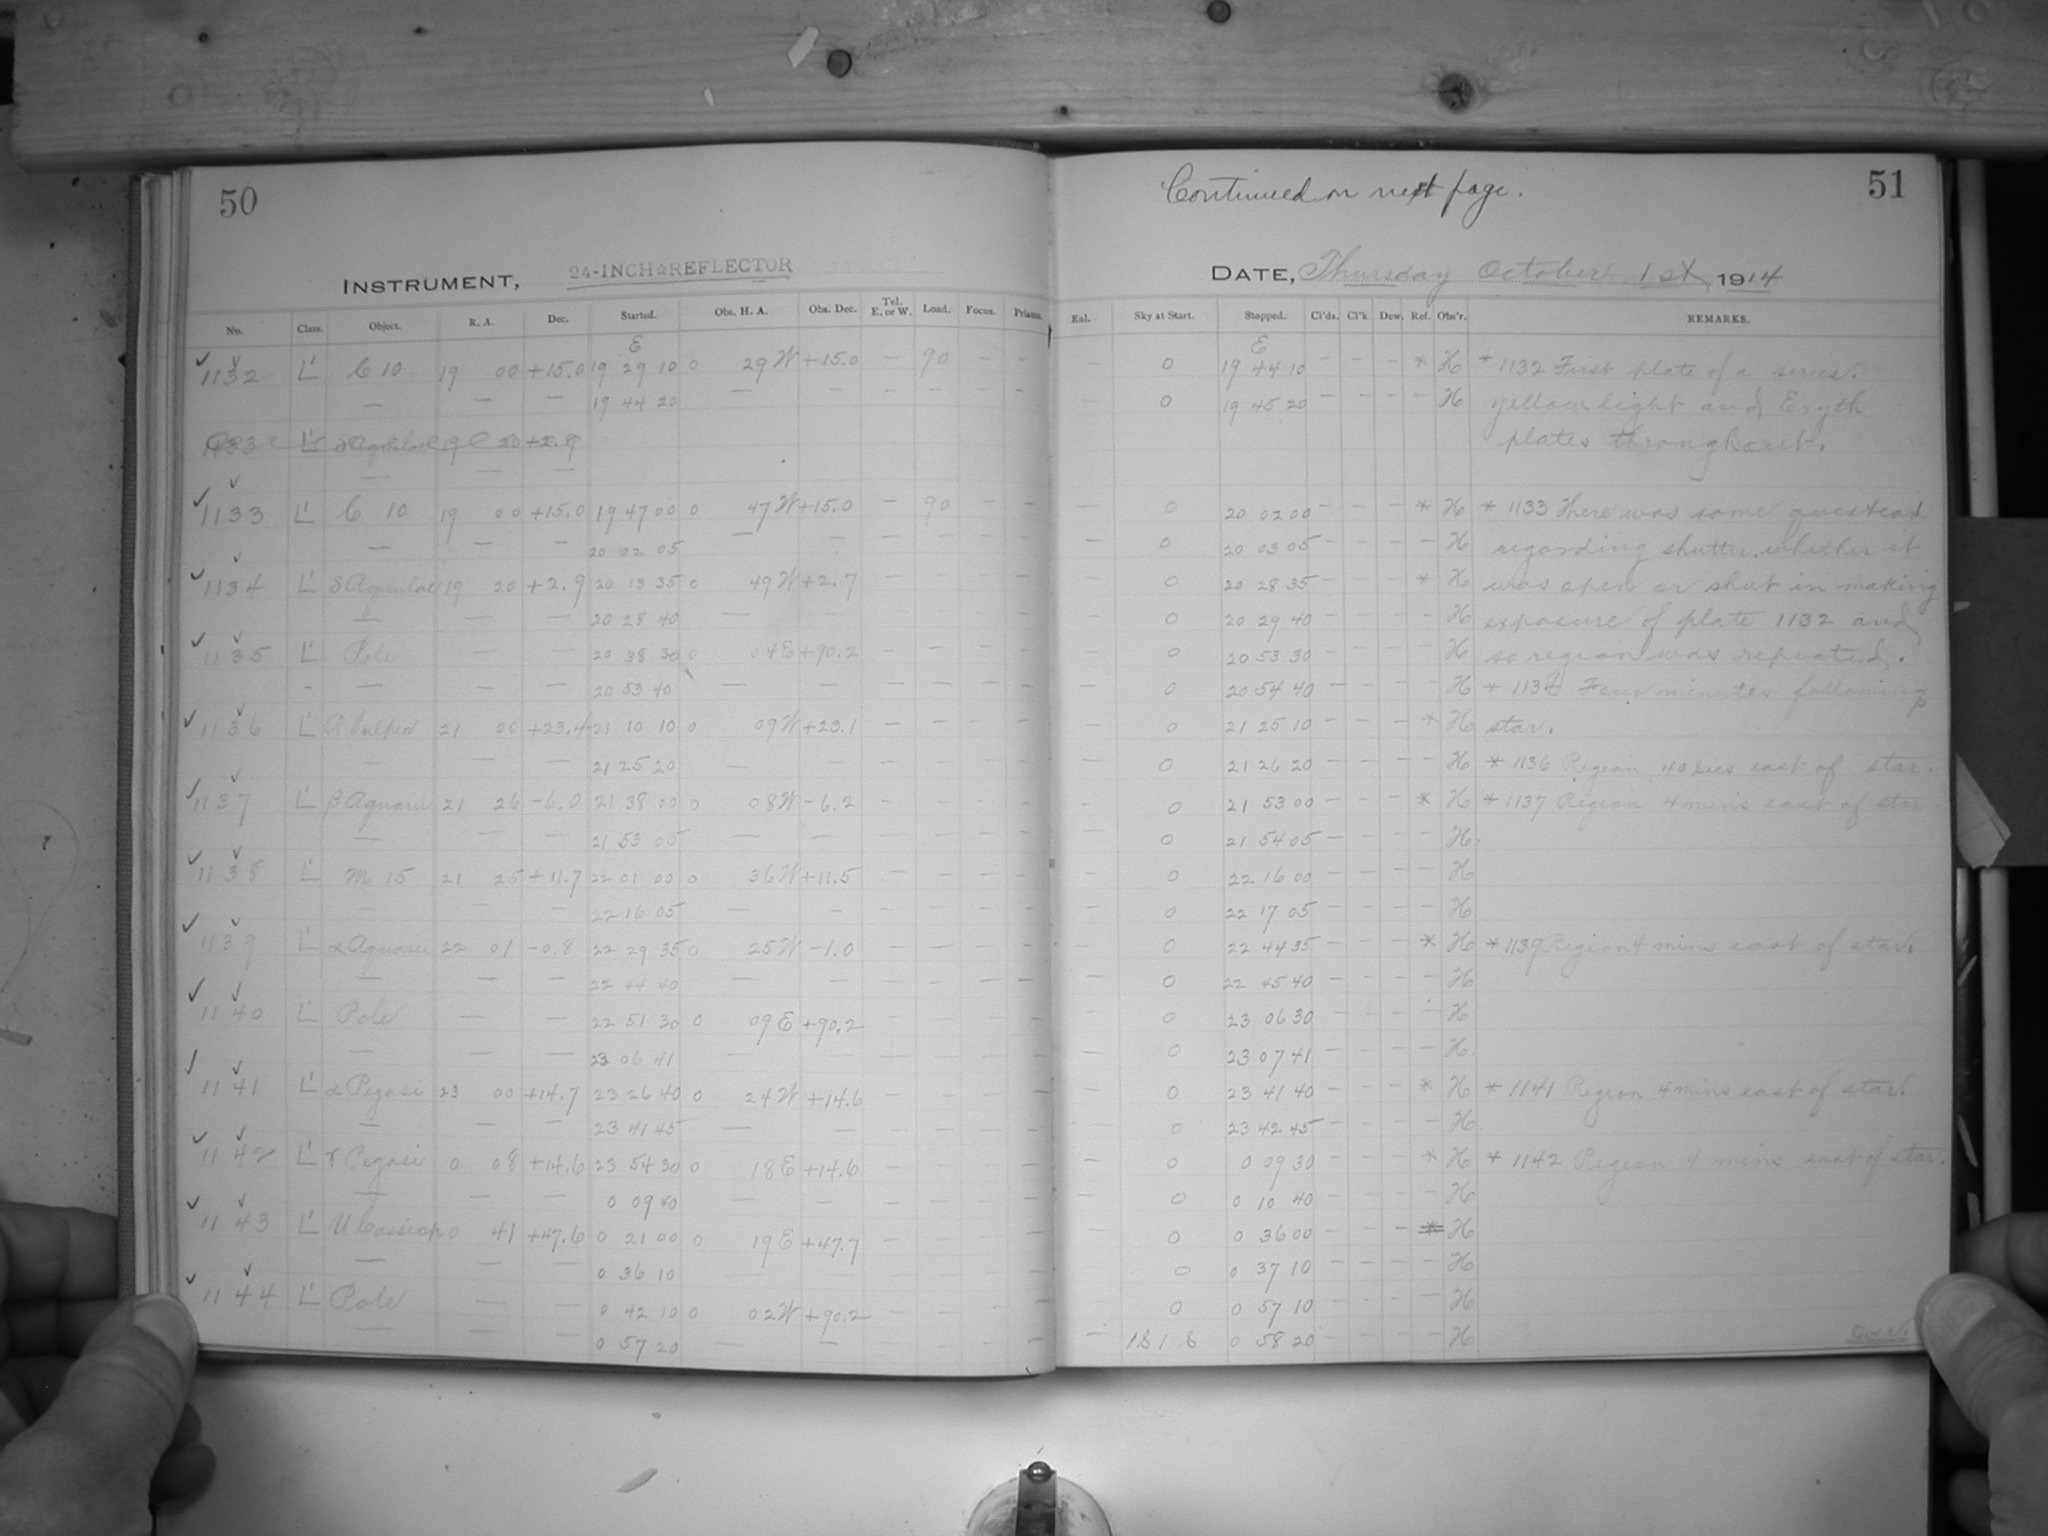 50
INSTRUMENT, 24-INCH☆REFLECTOR
No. Class. Object. R. A. Dec. Started. Obs. H. A. Obs. Dec. Tel. E. or W. Load. Focus. Prisms.
E
1132 L' C 10 19 00 +15.0 19 29 10 0 29 W +15.0 — 90 — —
— — — 19 44 20 — — — — — —
1133 L' δ Aquilae 19 20 +2.9
— — —
1133 L' C 10 19 00 +15.0 19 47 00 0 47 W +15.0 — 90 — —
— — — 20 02 05 — — — — — —
1134 L' δ Aquilae 19 20 +2.9 20 13 35 0 49 W +2.7 — — — —
— — — 20 28 40 — — — — — —
1135 L' Pole — — 20 38 30 0 04 E +90.2 — — — —
- — — — 20 53 40 — — — — — —
1136 L' R Vulpec 21 00 +23.4 21 10 10 0 09 W +23.1 — — — —
— — — 21 25 20 — — — — — —
1137 L' β Aquarii 21 26 -6.0 21 38 00 0 08 W -6.2 — — — —
— — — 21 53 05 — — — — — —
1138 L' M 15 21 25 +11.7 22 01 00 0 36 W +11.5 — — — —
— — — 22 16 05 — — — — — —
1139 L' α Aquarii 22 01 -0.8 22 29 35 0 25 W -1.0 — — — —
— — — 22 44 40 — — — — — —
1140 L' Pole — — 22 51 30 0 09 E +90.2 — — — —
— — — 23 06 41 — — — — — —
1141 L' α Pegasi 23 00 +14.7 23 26 40 0 24 W +14.6 — — — —
— — — 23 41 45 — — — — — —
1142 L' γ Pegasi 0 08 +14.6 23 54 30 0 18 E +14.6 — — — —
— — — 0 09 40 — — — — — —
1143 L' U Cassiop 0 41 +47.6 0 21 00 0 19 E +47.7 — — — —
— — — 0 36 10 — — — — — —
1144 L' Pole — — 0 42 10 0 02 W +90.2 — — — —
— — 0 57 20 — — — — — —
Continued on next page.
51
DATE, Thursday October 1st, 1914
Eal. Sky at Start. Stopped. Cl'ds. Cl'k Dew. Ref. Obs'r. REMARKS.
E
— 0 19 44 10 — — — * H * 1132 First plate of a series.
— 0 19 45 20 — — — — H yellow light and Eryth
plates throughout.
— 0 20 02 00 — — — * H * 1133 There was some question
— 0 20 03 05 — — — — H regarding shutter, whether it
— 0 20 28 35 — — — * H was open or shut in making
— 0 20 29 40 — — — — H exposure of plate 1132 and
— 0 20 53 30 — — — — H so region was repeated.
— 0 20 54 40 — — — — H * 1134 Four minutes following
— 0 21 25 10 — — — * H star.
— 0 21 26 20 — — — — H * 1136 Region 40 secs east of star.
— 0 21 53 00 — — — * H * 1137 Region 4 mins east of star
— 0 21 54 05 — — — — H
— 0 22 16 00 — — — — H
— 0 22 17 05 — — — — H
— 0 22 44 35 — — — * H * 1139 Region 4 mins east of star.
— 0 22 45 40 — — — — H
— 0 23 06 30 — — — — H
— 0 23 07 41 — — — — H
— 0 23 41 40 — — — * H * 1141 Region 4 mins east of star.
— 0 23 42 45 — — — — H
— 0 0 09 30 — — — * H * 1142 Region 4 mins east of star.
— 0 0 10 40 — — — — H
— 0 0 36 00 — — — * H
— 0 0 37 10 — — — — H
— 0 0 57 10 — — — — H
— 0 58 20 — — — — H
Over.